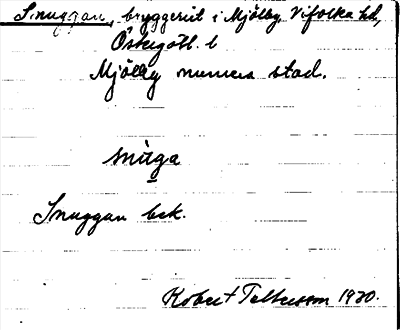 Snuggan, bryggeriet i Mjölby, Vifolka hd,
Östergötl. l
Mjölby numera stad.
snùga
Snuggan bek.
Robert 1930.